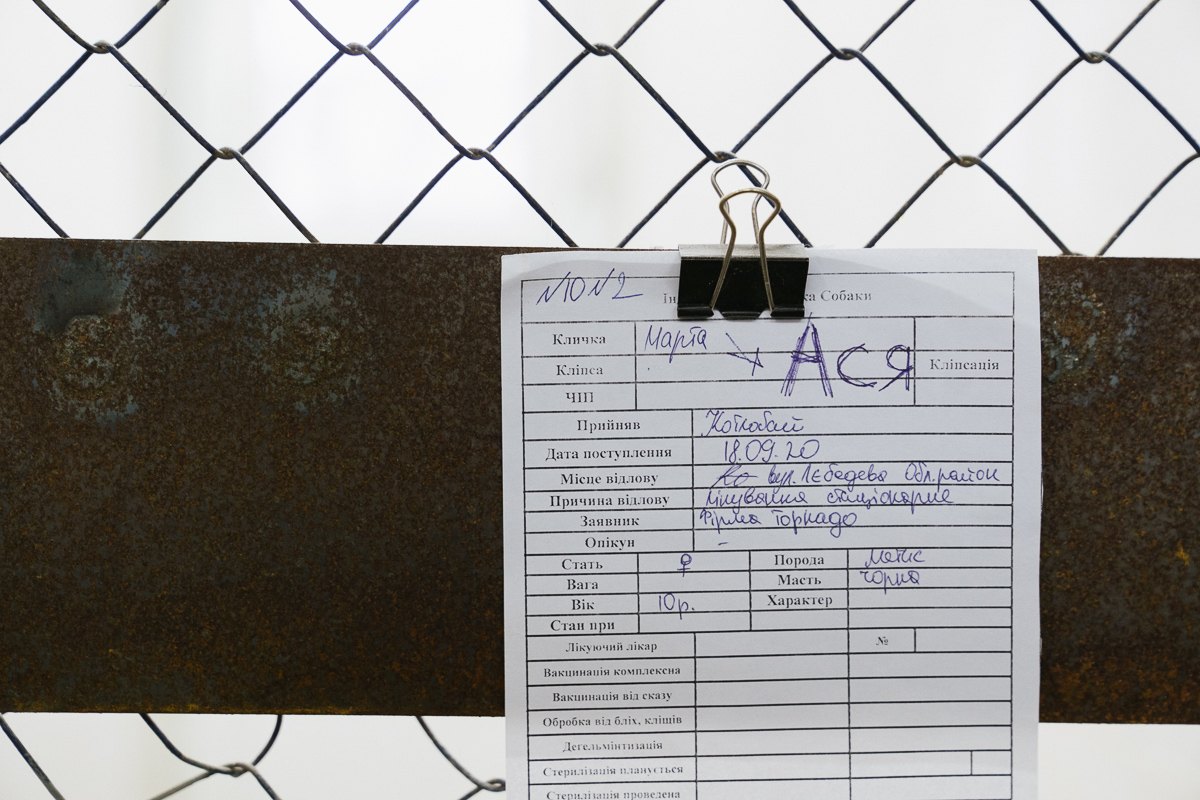 № 10 №2 Собаки
Кличка Марта → Ася Кліпсація
Кліпса
ЧІП
Прийняв Котлобай
Дата поступлення 18.09.20
Місце відлову вул. Лєбедева Обл. район
Причина відлову лікування стаціонарне
Заявник Фірма Торнадо
Опікун -
Стать ♀ Порода Метис
Вага Масть чорна
Вік 10р. Характер
Стан при
Лікуючий лікар №
Вакцинація комплексна
Вакцинація від сказу
Обробка від бліх, кліщів
Дегельмінтизація
Стерилізація планується
Стерилізація проведена